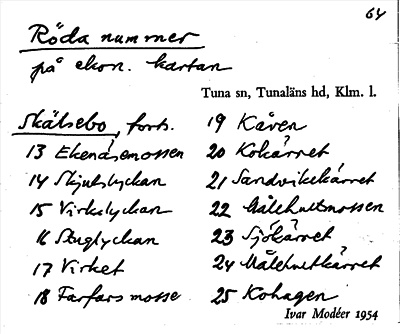 64
Röda nummer
på ekon. kartan
Tuna sn, Tunaläns hd, Klm. l.
Skälsebo, forts.
13 Ekenäsemossen
14 Skjutslyckan
15 Virkelyckan
16 Stuglyckan
17 Virket
18 Farfars mosse
19 Kåren
20 Kokärret
21 Sandvikekärret
22 Målehultmossen
23 Sjökärret
24 Målehultkärret
25 Kohagen
Ivar Modéer 1954